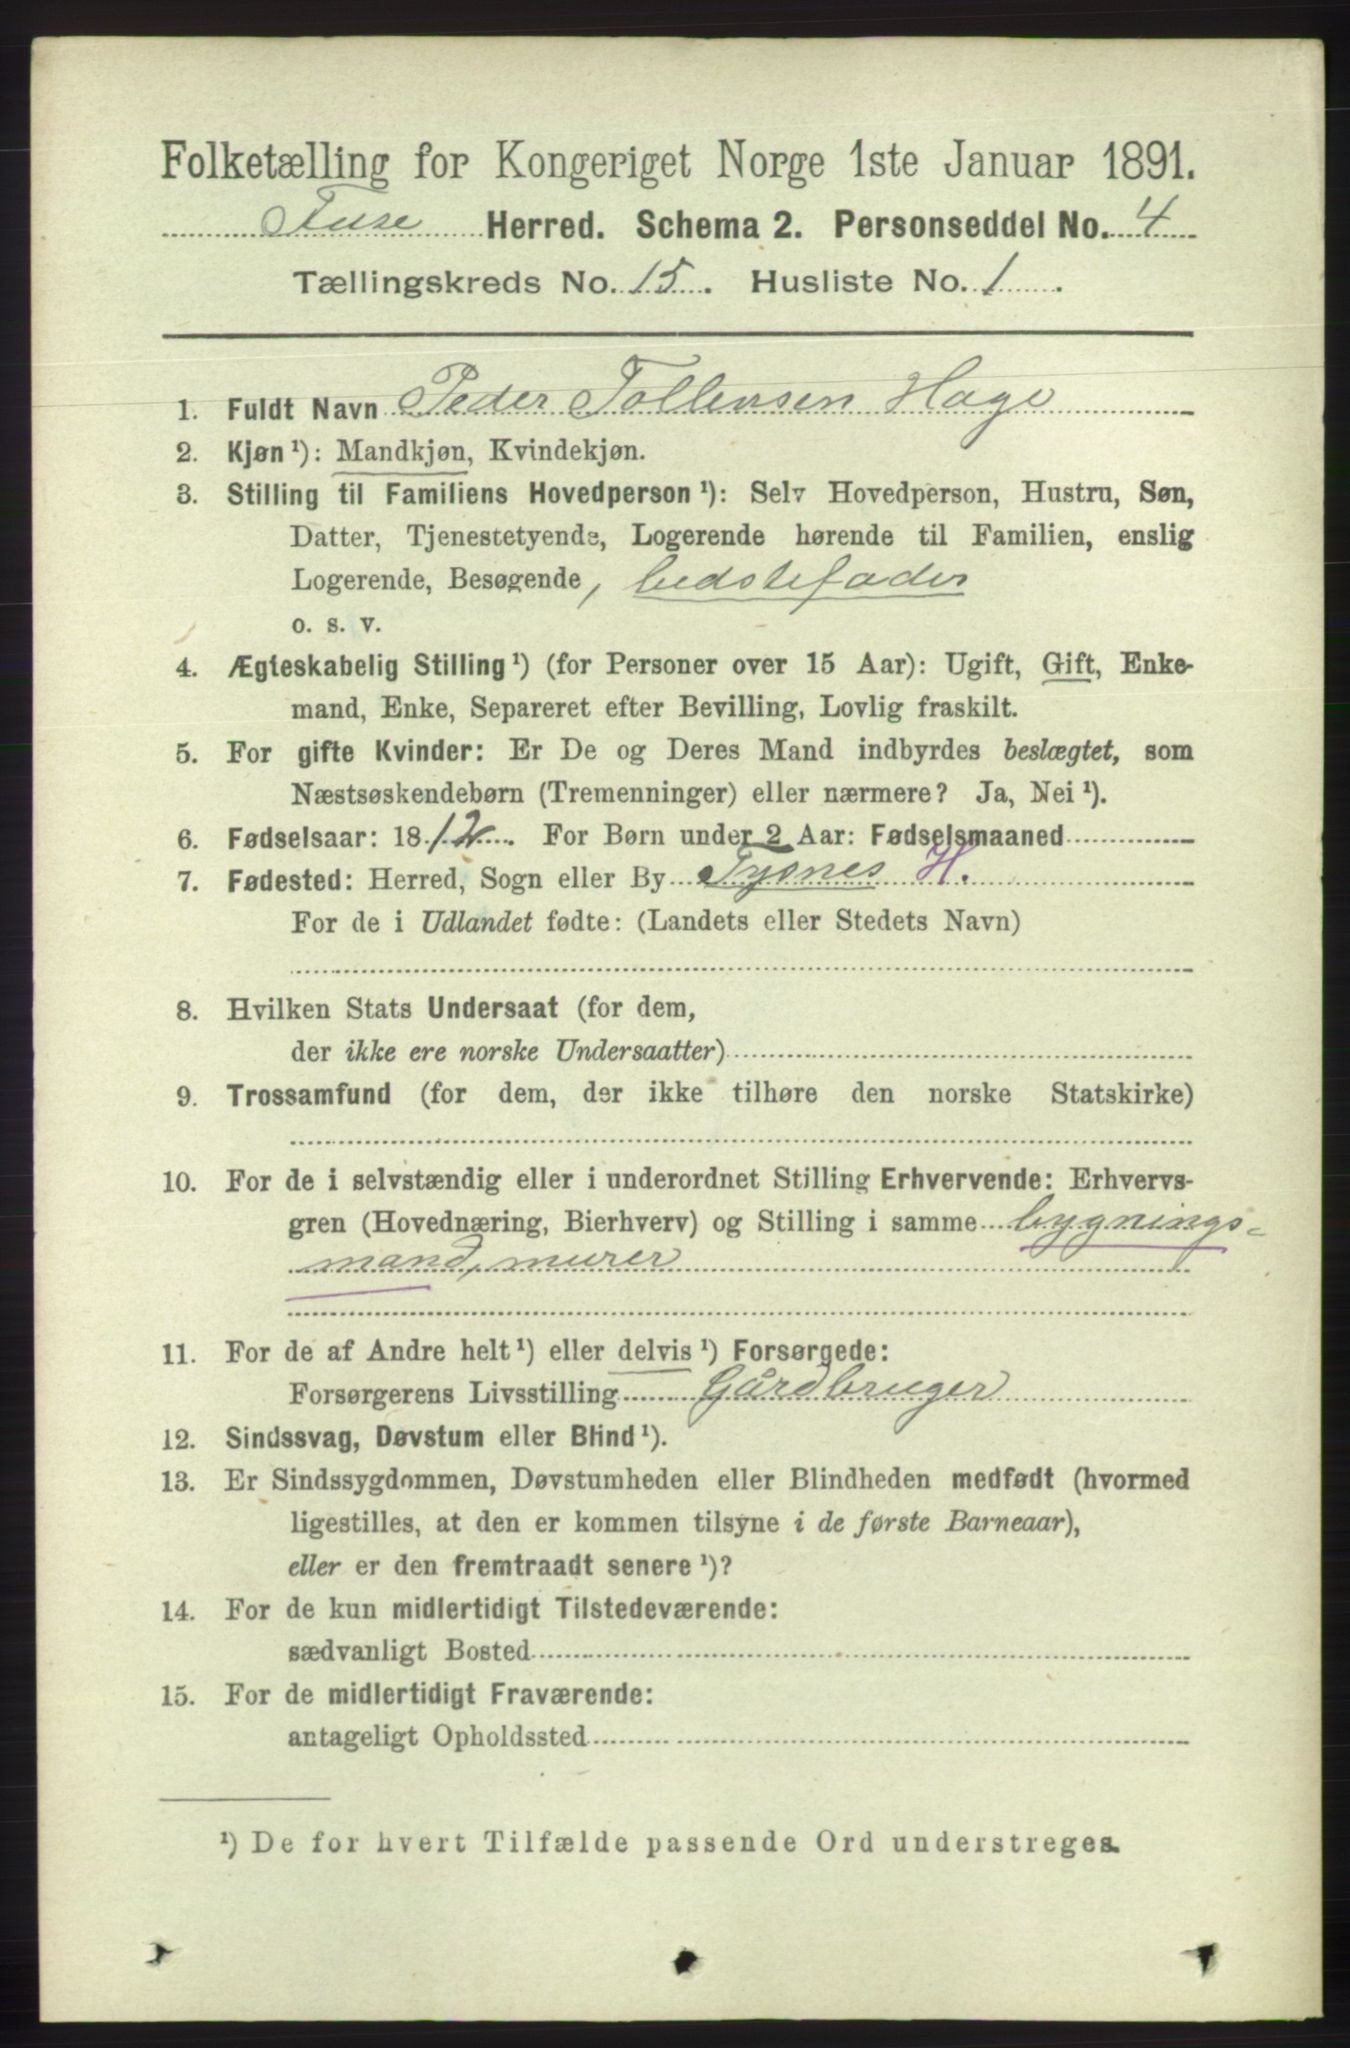 Folketælling for Kongeriget Norge 1ste Januar 1891.
Fuse Herred. Schema 2. Personseddel No. 4
Tællingskreds No. 15. Husliste No. 1.
1. Fuldt Navn Peder Tollevsen Hage
2. Kjøn ¹): Mandkjøn, Kvindekjøn.
3. Stilling til Familiens Hovedperson ¹): Selv Hovedperson, Hustru, Søn,
Datter, Tjenestetyende, Logerende hørende til Familien, enslig
Logerende, Besøgende, bedstefader
o. s. v.
4. Ægteskabelig Stilling ¹) (for Personer over 15 Aar): Ugift, Gift, Enke-
mand, Enke, Separeret efter Bevilling, Lovlig fraskilt.
5. For gifte Kvinder: Er De og Deres Mand indbyrdes beslægtet, som
Næstsøskendebørn (Tremenninger) eller nærmere? Ja, Nei ¹).
6. Fødselsaar: 1812. For Børn under 2 Aar: Fødselsmaaned
7. Fødested: Herred, Sogn eller By Tysnes H.
For de i Udlandet fødte: (Landets eller Stedets Navn)
8. Hvilken Stats Undersaat (for dem,
der ikke ere norske Undersaatter)
9. Trossamfund (for dem, der ikke tilhøre den norske Statskirke)
10. For de i selvstændig eller i underordnet Stilling Erhvervende: Erhvervs-
gren (Hovednæring, Bierhverv) og Stilling i samme bygnings-
mand, murer
11. For de af Andre helt ¹) eller delvis ¹) Forsørgede:
Forsørgerens Livsstilling Gårdbruger
12. Sindssvag, Døvstum eller Blind ¹).
13. Er Sindssygdommen, Døvstumheden eller Blindheden medfødt (hvormed
ligestilles, at den er kommen tilsyne i de første Barneaar),
eller er den fremtraadt senere ¹)?
14. For de kun midlertidigt Tilstedeværende:
sædvanligt Bosted
15. For de midlertidigt Fraværende:
antageligt Opholdssted
¹) De for hvert Tilfælde passende Ord understreges.